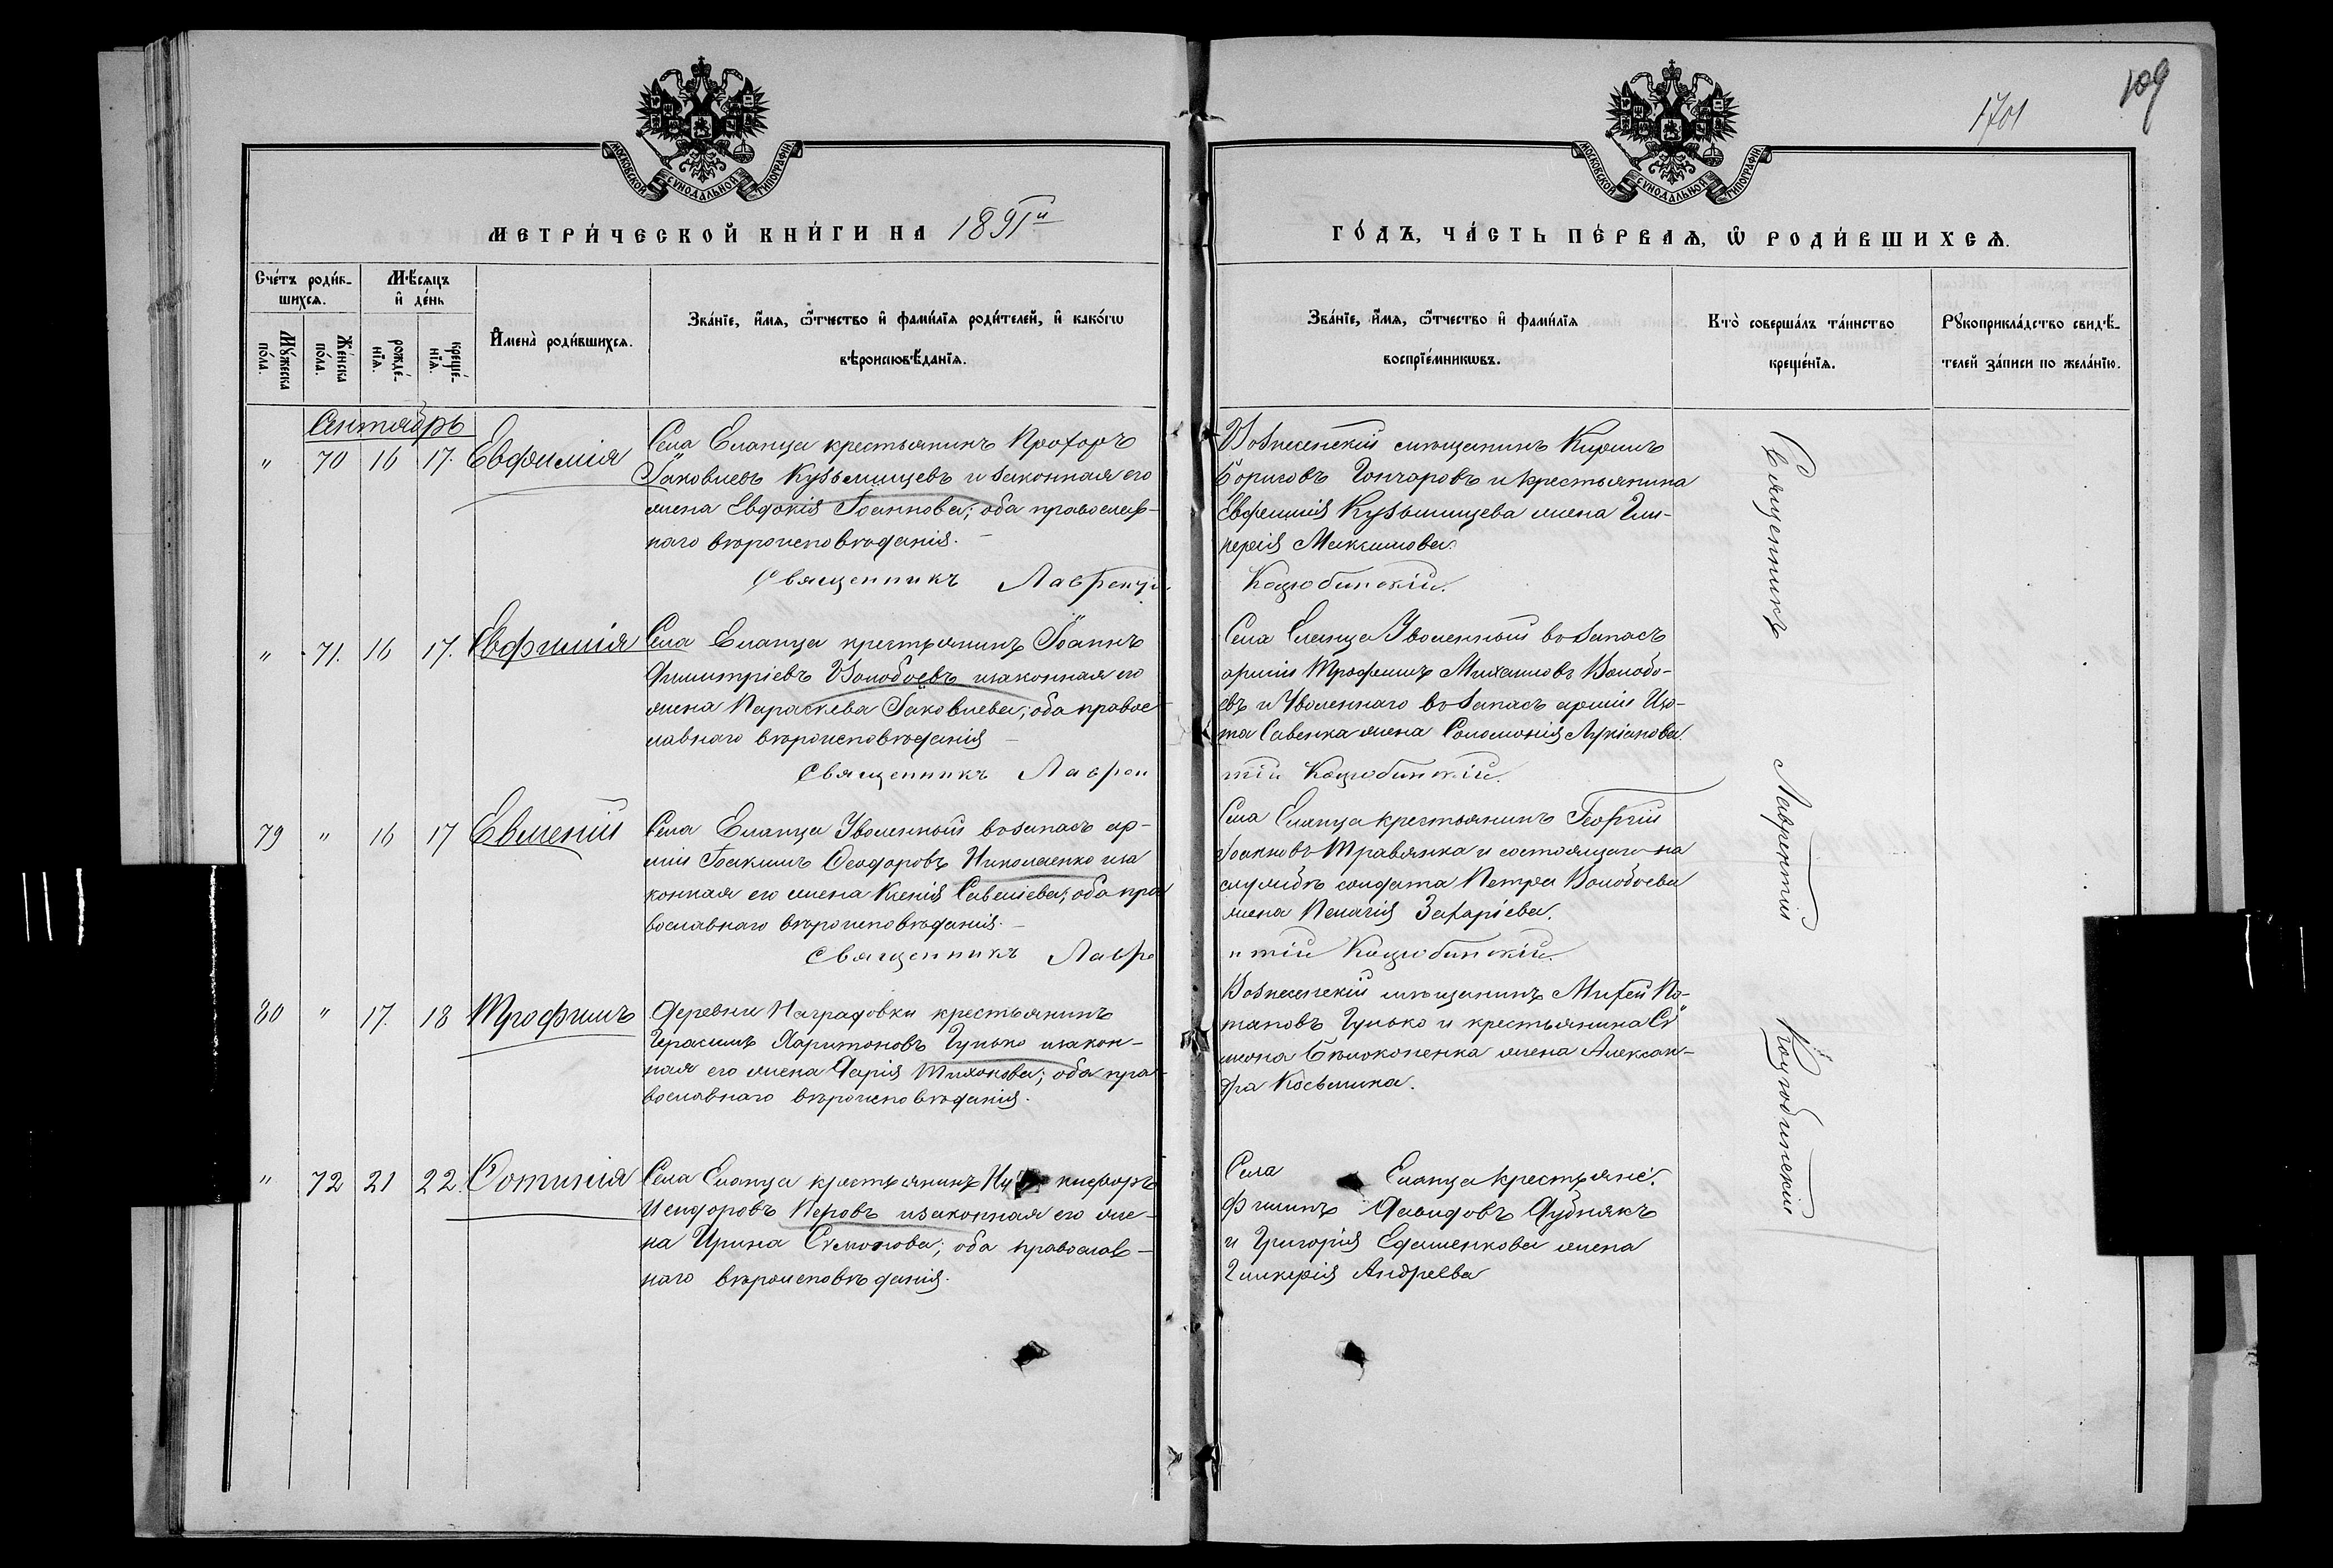 109
1701
МОСКОВСКОЙ СѴНОДАЛЬНОЙ ТИПОГРАФІИ
МОСКОВСКОЙ СѴНОДАЛЬНОЙ ТИПОГРАФІИ
МЕТРИ́ЧЕСКОЙ КНИ́ГИ НА 1891й
ГО́ДЪ, ЧА́СТЬ ПЕ́РВАЯ, Ѽ РОДИ́ВШИХСЯ.
Сче́тъ роди́в-
шихся.
Мѣ́сяцъ
и҆ де́нь
Мꙋ́жеска
по́ла.
Же́нска
по́ла.
рожде́-
нїя.
креще́-
нїя.
И҆мена̀ роди́вшихся.
Зва́нїе, и҆́мя, ѻ҆́тчество и҆ фами́лїя роди́телей, и҆ како́гѡ
вѣроисповѣ́данїя.
Зва́нїе, и҆́мя, ѻ҆́тчество и҆ фами́лїя
воспрїе́мникѡвъ.
Кто̀ соверша́лъ та́инство
креще́нїя.
Рꙋкоприкла́дство свидѣ́-
телей за́писи по жела́нїю.
Сентябрь
" 70 16 17. Евфимія
Села Еланца крестьянинъ Прохоръ
Іаковлевъ Кузьмицевъ и законная его
жена Евдокія Іоаннова; оба православ-
наго вѣроисповѣданія.
Священникъ Лаврентій
Вознесенскій мѣщанинъ Кирилъ
Борисовъ Гончаровъ и крестьянина
Евфимія Кузьмицева жена Гли-
керія Максимова.
Коцюбинскій.
" 71. 16 17. Евфимія
Села Еланца крестьянинъ Іоаннъ
Димитріевъ Волобоевъ и законная его
жена Параскева Іаковлева; оба правос-
лавнаго вѣроисповѣданія
Священникъ Лаврен
Села Еланца Уволенный въ запасъ
арміи Трофимъ Михаиловъ Волобо-
евъ и Уволеннаго въ запасъ арміи
Савенка жена Соломонія Лукіанова.
тій Коцюбинскій.
79 " 16 17 Евменій
Села Еланца Уволенный въ запасъ ар-
міи Іоакимъ Ѳеодоровъ Николаенко и за
конная его жена Ксенія Савеліева; оба пра
вославнаго вѣроисповѣданія.
Священникъ Лавре
Села Еланца крестьянинъ Георгій
Іоанновъ Травянка и состоящаго на
службѣ солдата Петра Волобоева
жена Пелагія Захаріева.
нтій Коцюбинскій.
80 " 17. 18 Трофимъ
Деревни Награтовки крестьянинъ
Герасимъ Харитоновъ Гулько и закон-
ная его жена Дарія Тихонова; оба пра-
вославнаго вѣроисповѣданія.
Вознесенскій мѣщанинъ Михей По-
таповъ Гулько и крестьянина Си-
меона Бѣлоконенка жена Алексан-
дра Косьмина.
" 72 21 22. Фотинія
Села Еланца крестьянинъ Ни кифоръ
Исидоровъ Перовъ и законная его же-
на Ирина Семенова; оба православ-
наго вѣроисповѣданія.
Села Еланца крестьяне:
Филипъ Давидовъ Дубнякъ
и Григорія Едашенкова жена
Гликерія Андреева
Священникъ Лаврентій Коцюбинскій